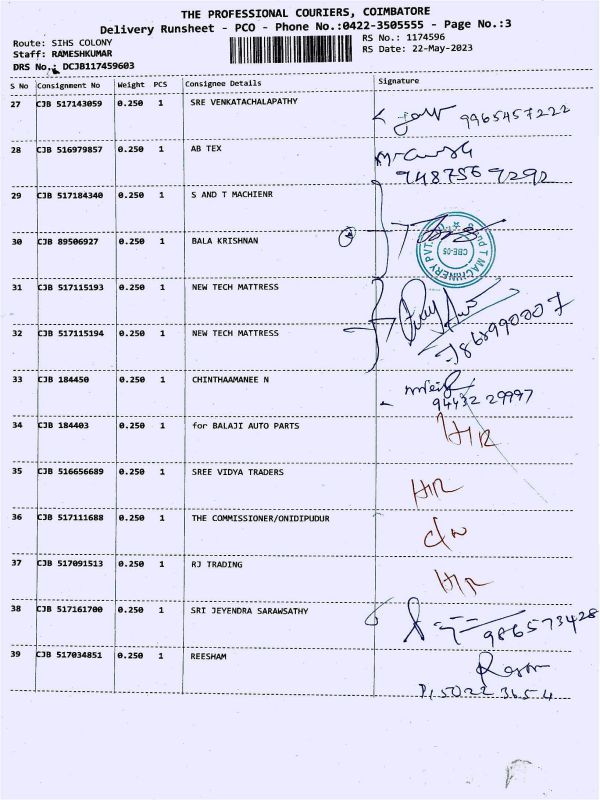 THE PROFESSIONAL COURIERS, COIMBATORE
Delivery Runsheet - PCO - Phone No.:0422-3505555 - Page No.:3
Route: SIHS COLONY
RS No.: 1174596
Staff: RAMESHKUMAR
RS Date: 22-May-2023
DRS No.: DCJB117459603
S No Consignment No Weight PCS Consignee Details Signature
27 CJB 517143059 0.250 1 SRE VENKATACHALAPATHY 9965457222
28 CJB 516979857 0.250 1 AB TEX
9487569292
29 CJB 517184340 0.250 1 S AND T MACHIENR
30 CJB 89506927 0.250 1 BALA KRISHNAN
CBE-05
31 CJB 517115193 0.250 1 NEW TECH MATTRESS
32 CJB 517115194 0.250 1 NEW TECH MATTRESS
33 CJB 184450 0.250 1 CHINTHAAMANEE N
94432 29997
34 CJB 184403 0.250 1 for BALAJI AUTO PARTS H/R
35 CJB 516656689 0.250 1 SREE VIDYA TRADERS H/R
36 CJB 517111688 0.250 1 THE COMMISSIONER/ONIDIPUDUR
37 CJB 517091513 0.250 1 RJ TRADING H/R
38 CJB 517161700 0.250 1 SRI JEYENDRA SARAWSATHY 986573428
39 CJB 517034851 0.250 1 REESHAM